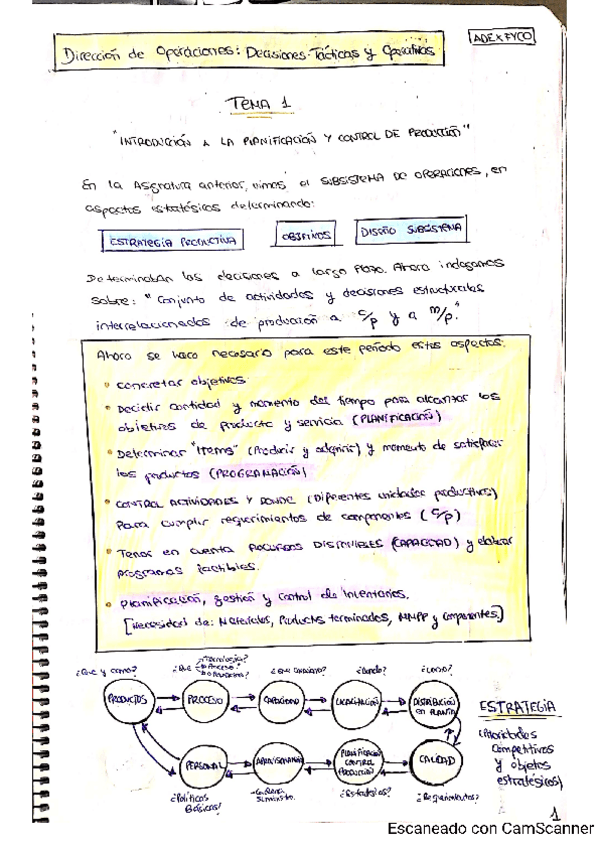 Dirección de Operaciones: Decisiones Tácticas y Operativas
ADE x FYCO
TEMA 1
"INTRODUCCIÓN A LA PLANIFICACIÓN Y CONTROL DE PRODUCCIÓN"
En la Asignatura anterior, vimos el SUBSISTEMA DE OPERACIONES, en
aspectos estratégicos determinando:
ESTRATEGIA PRODUCTIVA
OBJETIVOS
DISEÑO SUBSISTEMA
Determinaban las decisiones a largo plazo. Ahora indagamos
sobre: "Conjunto de actividades y decisiones estructurales
interrelacionadas de producción a c/p y a m/p."
Ahora se hace necesario para este período estos aspectos:
• Concretar objetivos
• Decidir cantidad y momento del tiempo para alcanzar los
objetivos de producto y servicio (PLANIFICACIÓN)
• Determinar "Items" (Producir y adquirir) y momento de satisfacer
los productos (PROGRAMACIÓN)
• CONTROL ACTIVIDADES Y DONDE (Diferentes unidades productivas)
Para cumplir requerimientos de componentes (c/p)
• Tener en cuenta RECURSOS DISPONIBLES (CAPACIDAD) y elaborar
programas factibles.
• Planificación, gestión y control de inventarios.
[Necesidad de: Materiales, Productos terminados, MMPP y componentes.]
¿Que y como?
¿Que
Tecnología?
Proceso?
¿Que capacidad?
¿Donde?
¿Como?
PRODUCTOS
PROCESO
CAPACIDAD
LOCALIZACIÓN
DISTRIBUCIÓN
en PLANTA
ESTRATEGIA
(Prioridades
competitivas
y objetos
estratégicos)
PERSONAL
APROVISIONAMIENTO
PLANIFICACIÓN
CONTROL
PRODUCCIÓN
CALIDAD
¿Políticas
Básicas?
Suministro.
¿Estándares?
¿Requerimientos?
1
Escaneado con CamScanner